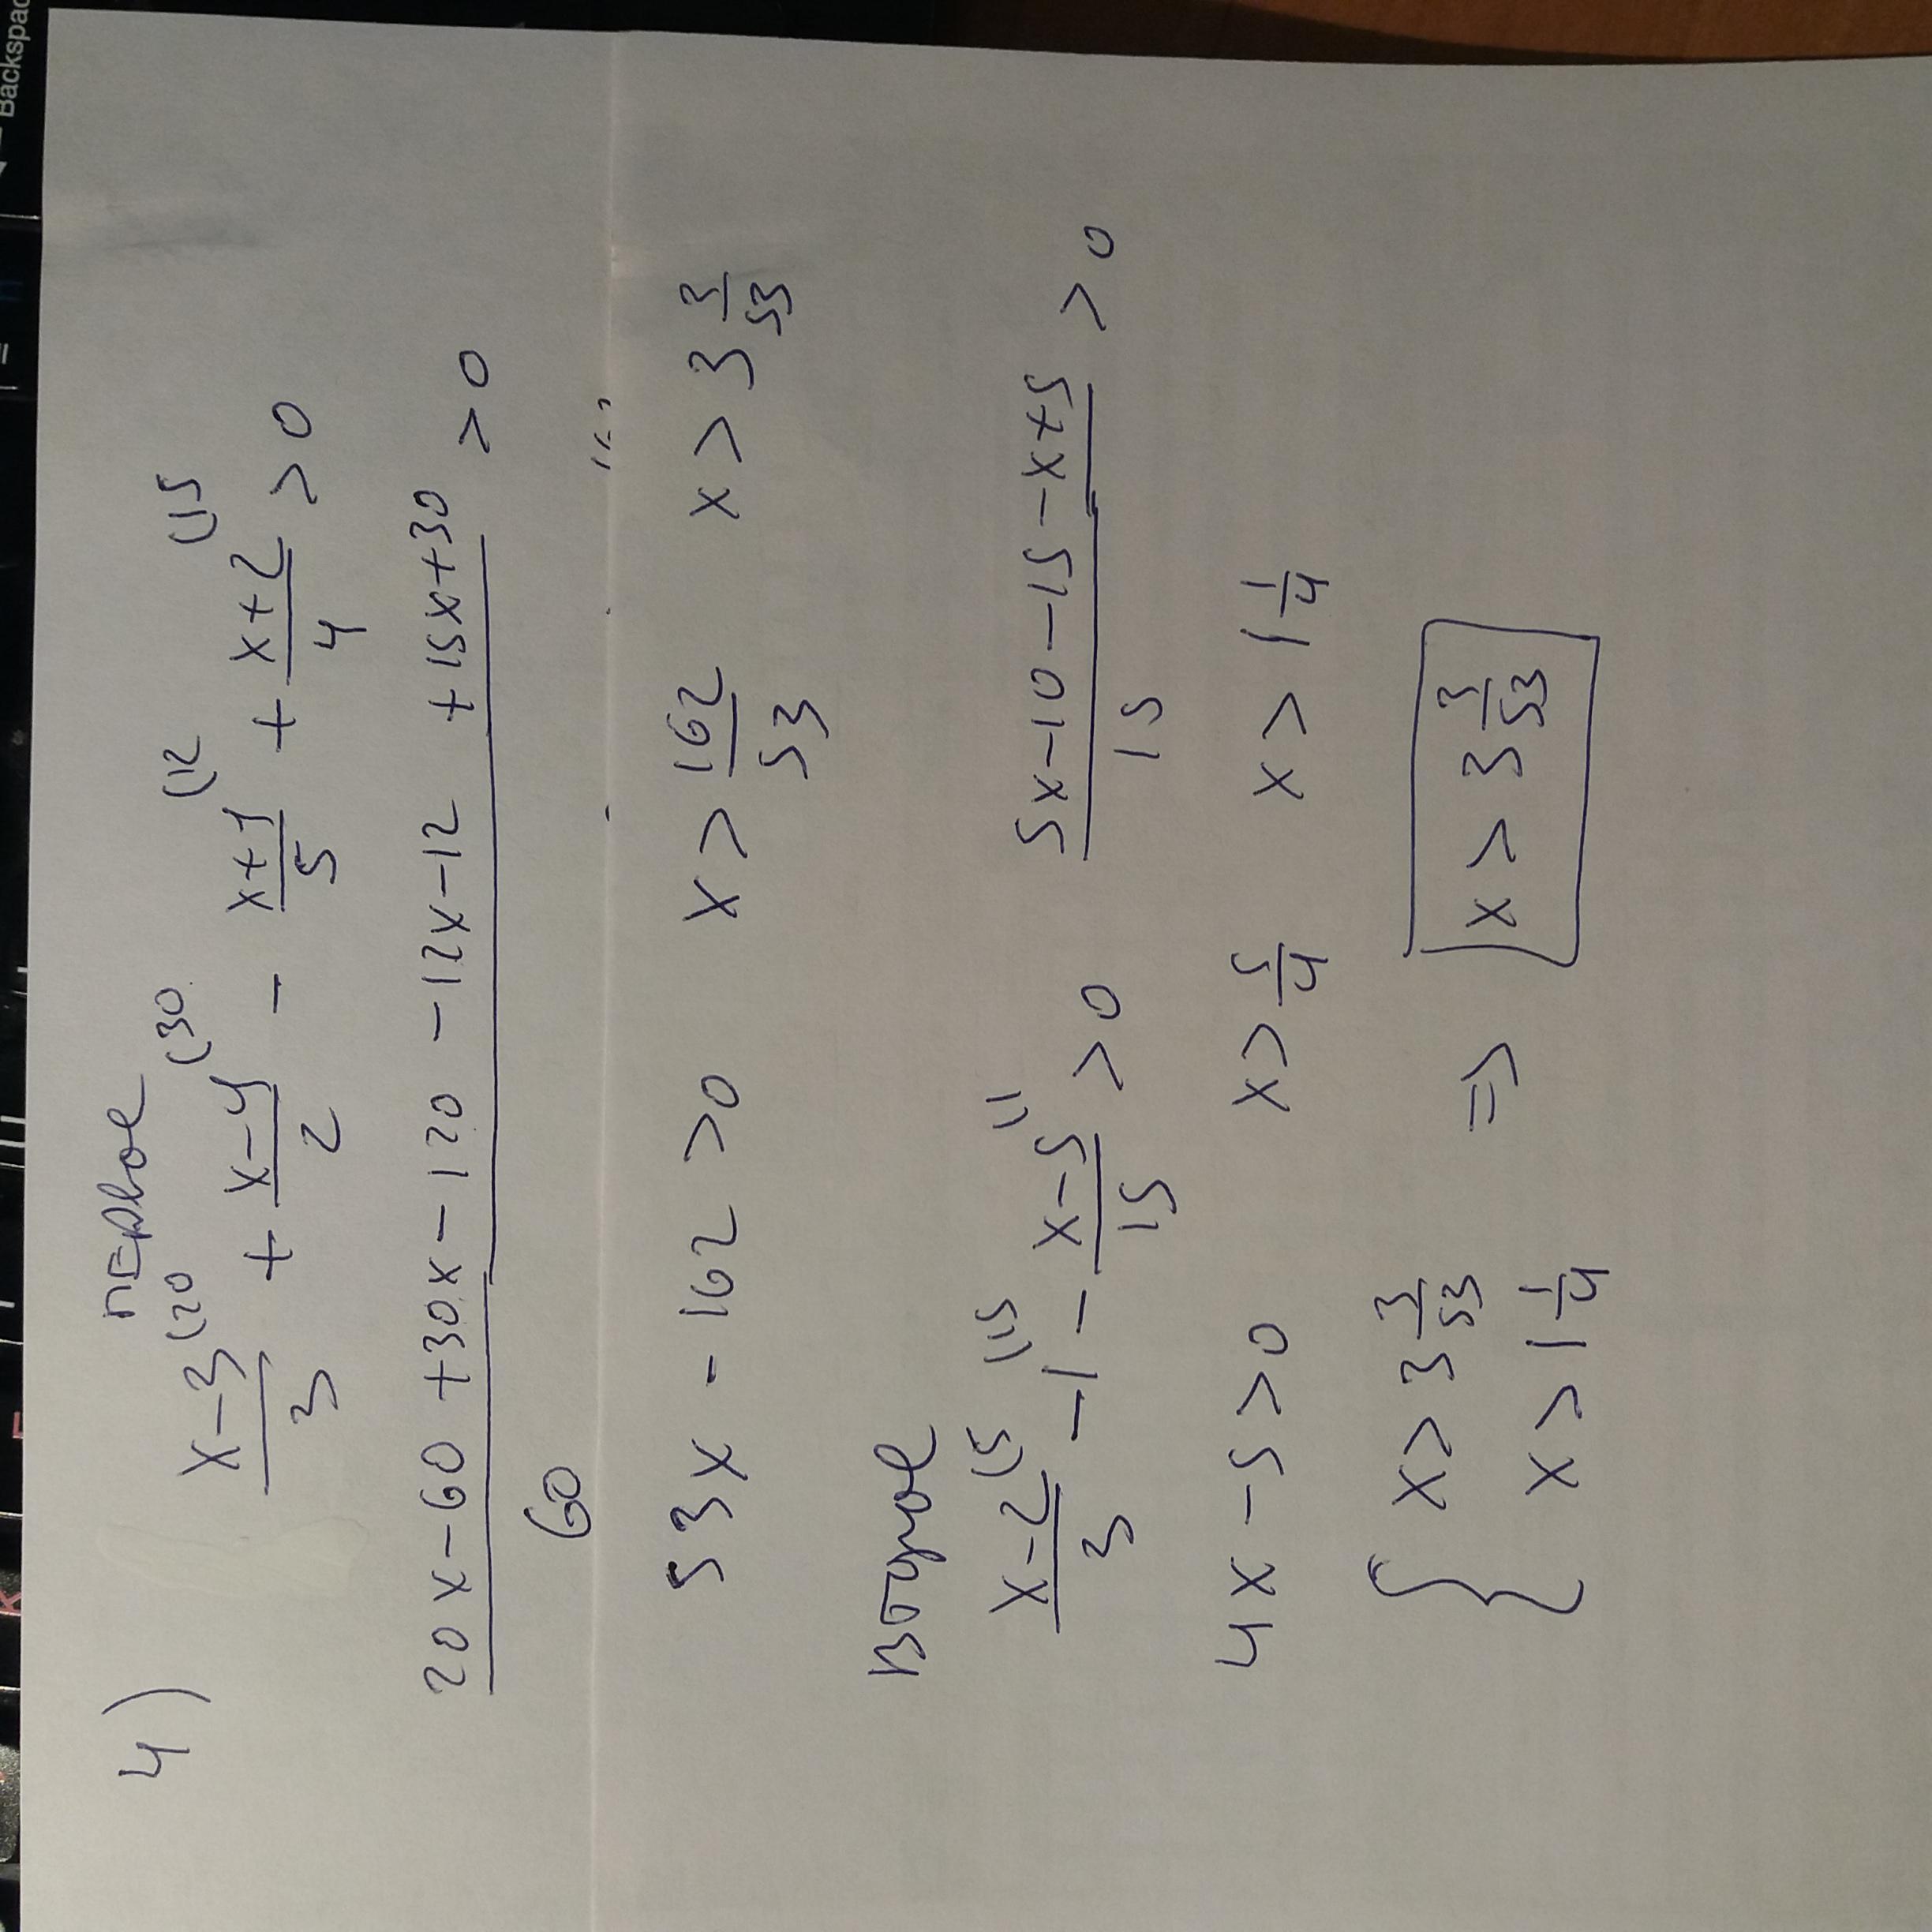 4) первое
(x-3)/3 (20 + (x-4)/2 (30 - (x+1)/5 (12 + (x+2)/4 (15 > 0
(20x-60+30x-120-12x-12+15x+30)/60 > 0
53x - 162 > 0 x > 162/53 x > 3 3/53
второе
(x-2)/3 (5 - 1 (15 - (x-5)/15 (1 > 0 (5x-10-15-x+5)/15 > 0
4x - 5 > 0 x > 5/4 x > 1 1/4
{ x > 3 3/53
x > 1 1/4 => x > 3 3/53
Backspac